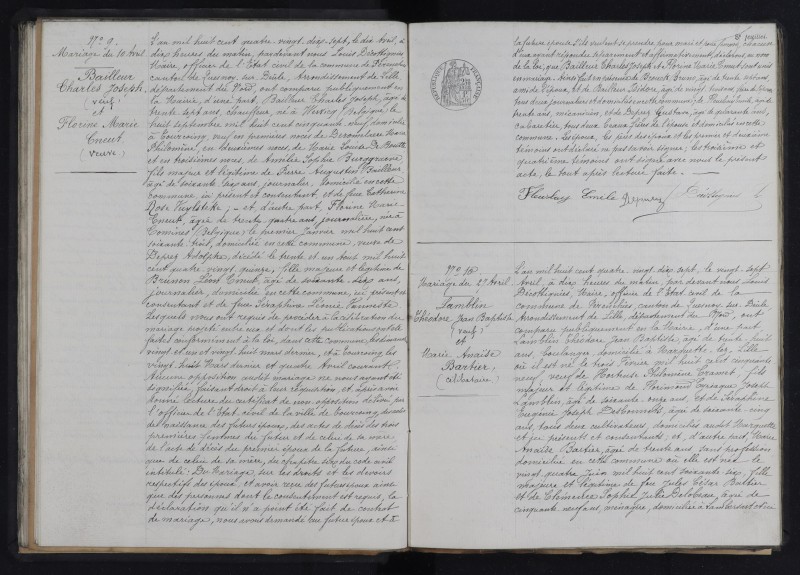 N° 9.
Mariage du 10 Avril
Bailleur
Charles Joseph,
(veuf)
et
Florine Marie
Cneut
(veuve)
L'an mil huit cent quatre-vingt-dix-sept, le dix Avril, à
dix heures du matin, pardevant nous Louis
Maire, officier de l'Etat civil de la commune de
canton de Quesnoy-sur-Deûle, Arrondissement de Lille,
département du Nord, ont comparu publiquement en
la Mairie, d'une part, Bailleur Charles Joseph, âgé de
trente sept ans, chauffeur, né à (Belgique) le
huit septembre mil huit cent cinquante neuf, domicilié
à Tourcoing, veuf en premières noces de
Philomène, en deuxièmes noces, de Marie Louise De
et en troisièmes noces, de Amélie Sophie
fils majeur et légitime de Pierre Augustin Bailleur
âgé de soixante six ans, journalier, domicilié en cette
commune, ici présent et consentant, et de feue Catherine
Rose ; et d'autre part, Florine Marie
Cneut, âgée de trente quatre ans, journalière, née à
Comines (Belgique) le premier Janvier mil huit cent
soixante trois, domiciliée en cette commune, veuve de
Deprez Adolphe, décédé le trente et un Août mil huit
cent quatre vingt quinze, fille majeure et légitime de
Léon Cneut, âgé de soixante ans,
journalier, domicilié en cette commune, ici présent et
consentant et de feue Séraphine Léonie
Lesquels nous ont requis de procéder à la célébration du
mariage projeté entre eux, et dont les publications ont été
faites conformément à la loi, dans cette commune, les dimanches
vingt et un et vingt huit Mars dernier, et à Tourcoing les
vingt huit Mars dernier et quatre Avril courant.
Aucune opposition audit mariage ne nous ayant été
signifiée, faisant droit à leur réquisition, et après avoir
donné lecture du certificat de non opposition délivré par
l'officier de l'Etat civil de la ville de Tourcoing, des actes
de naissance des futurs époux, des actes de décès des trois
premières femmes du futur et de celui de sa mère,
de l'acte de décès du premier époux de la future, ainsi
que de celui de sa mère, du chapitre six du code civil
intitulé: Du Mariage, sur les droits et les devoirs
respectifs des époux, et avoir reçu des futurs époux ainsi
que des personnes dont le consentement est requis, la
déclaration qu'il n'a point été fait de contrat
de mariage, nous avons demandé au futur époux et à
la future épouse s'ils veulent se prendre pour mari et pour femme, chacun
d'eux ayant répondu séparément et affirmativement, déclarons au nom
de la loi, que Bailleur Charles Joseph et Florine Marie Cneut sont unis
en mariage. Ainsi fait en présence de Bruno, âgé de trente ans
ami de l'époux, et de Bailleur Isidore, âgé de vingt ans, frère de l'époux
tous deux journaliers et domiciliés en cette commune, de âgé de
trente ans, mécanicien, et de Deprez Gustave, âgé de quarante ans,
cabaretier, tous deux de l'épouse et domiciliés en cette
commune. Les époux, les pères des époux et les premier et deuxième
témoins ont déclaré ne pas savoir signer; les troisième et
quatrième témoins ont signé avec nous le présent
acte, le tout après lecture faite.
Emile
N° 10.
Mariage du 27 Avril.
Lamblin
Théodore Jean Baptiste
(veuf)
et
Marie Anaïse
Barbier,
(célibataire)
L'an mil huit cent quatre-vingt-dix-sept, le vingt-sept
Avril, à dix heures du matin, par devant nous Louis
Maire, officier de l'Etat civil de la
commune de canton de Quesnoy-sur-Deûle
Arrondissement de Lille, département du Nord, ont
comparu publiquement en la Mairie, d'une part,
Lamblin Théodore Jean Baptiste, âgé de trente huit
ans, boulanger, domicilié à Marquette-lez-Lille
où il est né le trois Février mil huit cent cinquante
neuf, veuf de Hortense Philomène fils
majeur et légitime de Florimond Joseph
Lamblin, âgé de soixante onze ans, et de Séraphine
Eugénie Joseph âgée de soixante-cinq
ans, tous deux cultivateurs, domiciliés audit Marquette
et ici présents et consentants; et, d'autre part, Marie
Anaïse Barbier, âgée de trente ans, sans profession
domiciliée en cette commune où elle est née le
vingt quatre Juin mil huit cent soixante six, fille
majeure et légitime de feu Jules César Barbier
et de Clémence Sophie Julie âgée de
cinquante neuf ans, ménagère, domiciliée à